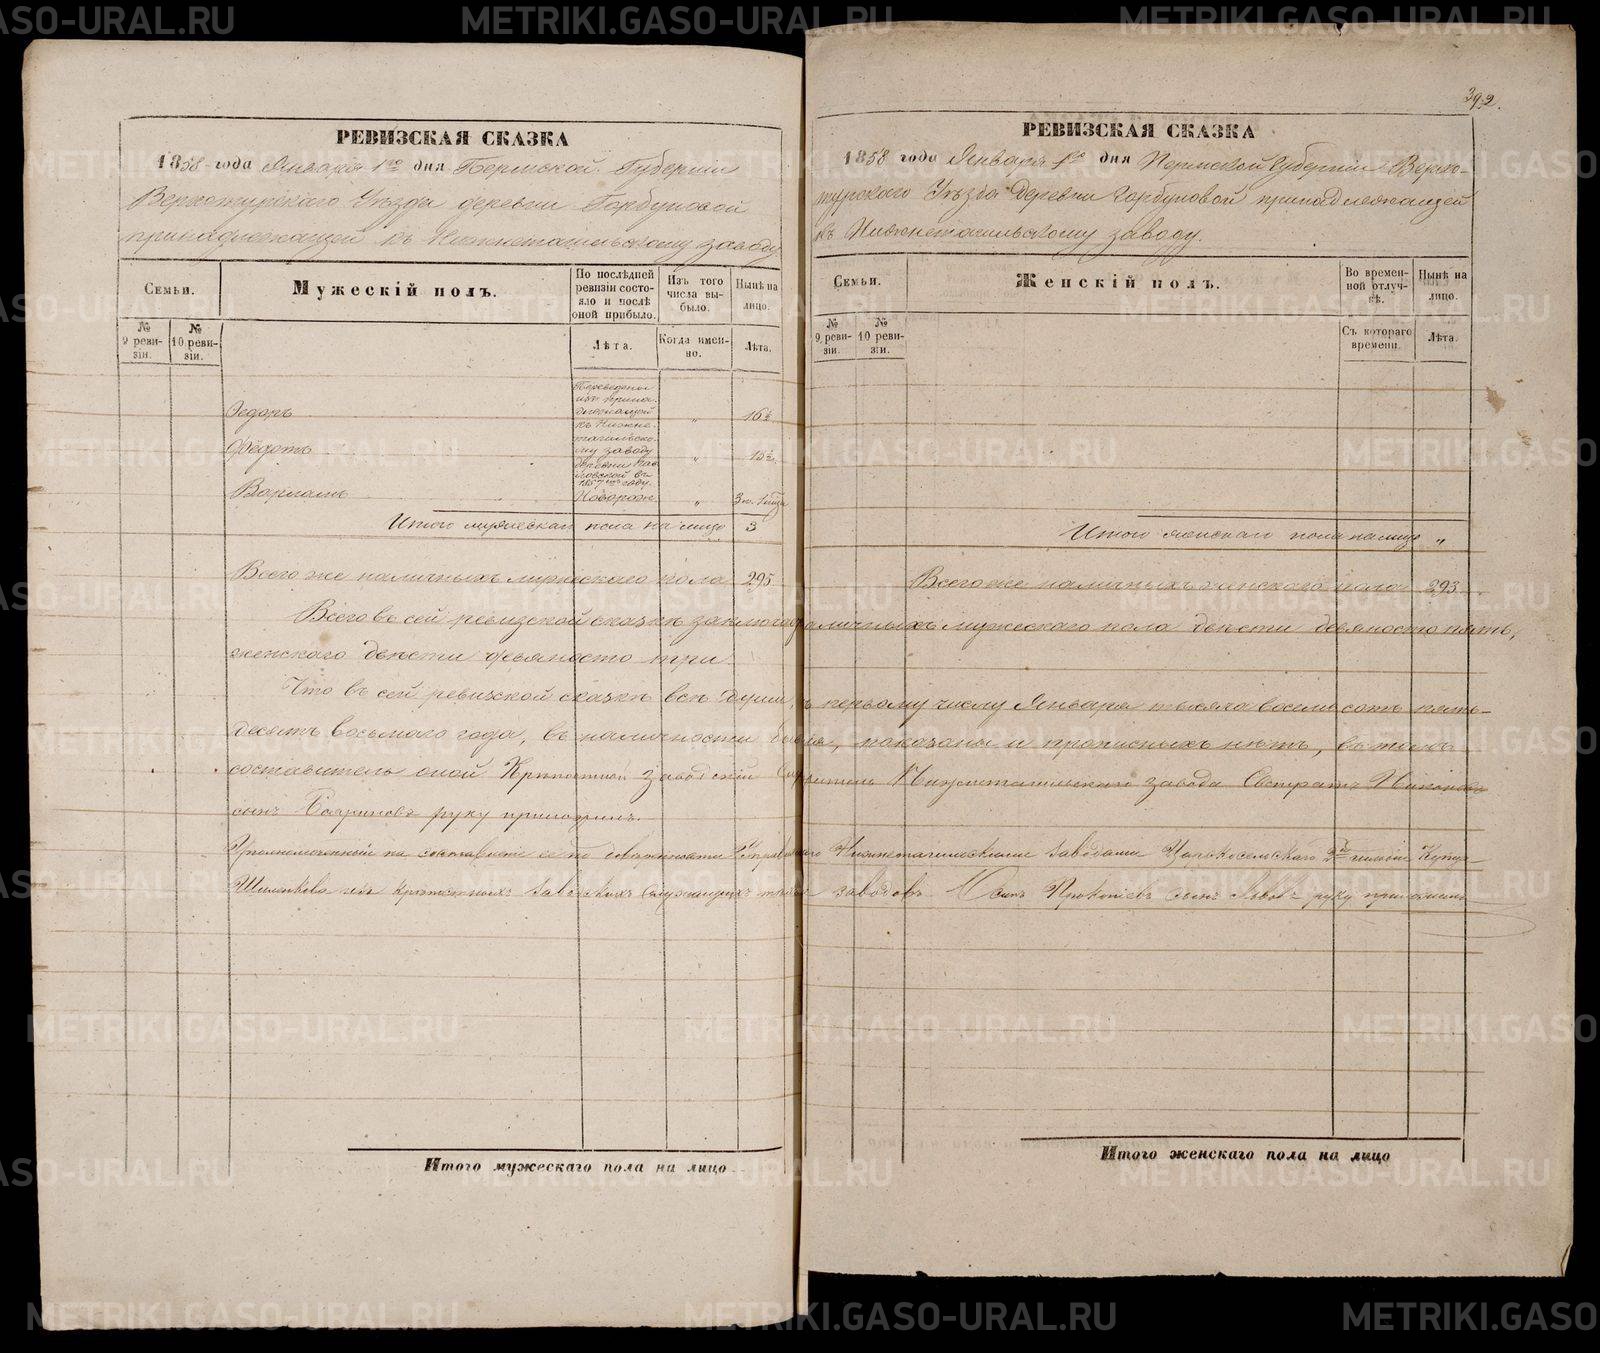 РЕВИЗСКАЯ СКАЗКА
1858 года Января 1го дня Пермской Губернiи
Верхотурскаго Уѣзда деревни Горбуновой
принадлежащей къ Нижнетагильскому заводу.
Семьи.
Мужескiй полъ.
По послѣдней ревизiи состояло и послѣ оной прибыло.
Изъ того числа выбыло.
Нынѣ на лицо.
№ 9 ревизiи.
№ 10 ревизiи.
Лѣта.
Когда именно.
Лѣта.
Переведены
изъ принад
лежащей
къ Нижне-
тагильско-
му заводу
деревни
въ
1857мъ году.
Ѳедоръ " 16½
Ѳедотъ " 15½
Варламъ Новорож. "
Итого мужескаго пола на лицо 3
Всего же наличныхъ мужескаго пола 295
Итого мужескаго пола на лицо
392.
РЕВИЗСКАЯ СКАЗКА
1858 года Января 1го дня Пермской Губернiи Верхо-
турскаго Уѣзда деревни Горбуновой принадлежащей
къ Нижнетагильскому заводу.
Семьи.
Женскiй полъ.
Во временной отлучкѣ.
Нынѣ на лицо.
№ 9 ревизiи.
№ 10 ревизiи.
Съ котораго времени.
Лѣта.
Итого женскаго пола на лицо "
Всего же наличныхъ женскаго пола 293.
Всего въ сей ревизской сказкѣ заключ наличныхъ мужескаго пола двѣсти девяносто пять,
женскаго двѣсти девяносто три.
Что въ сей ревизской сказкѣ всѣ души, къ первому числу Января тысяча восемь сотъ пять-
десятъ восьмаго года, въ наличности бывшiя, показаны и прописныхъ нѣтъ, въ томъ
составитель оной Крѣпостной заводскiй Служитель Нижнетагильскаго завода Евстратъ
сынъ руку приложилъ.
Уполномоченный на составленiе ее по довѣренности Управляющаго Нижнетагильскими заводами Царскосельскаго 2й гильдiи Купца
изъ крѣпостныхъ заводскихъ служащихъ тѣхъ заводовъ Прокопiевъ сынъ руку приложилъ
Итого женскаго пола на лицо
METRIKI.GASO-URAL.RU